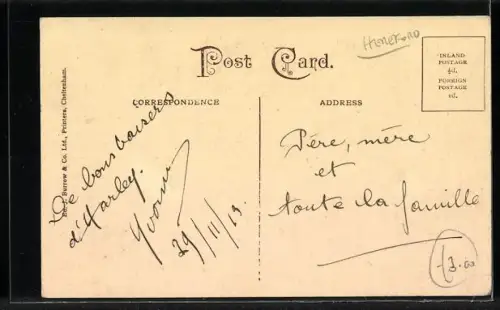 HEREFORD
Post Card.
INLAND
POSTAGE
½d.
FOREIGN
POSTAGE
1d.
CORRESPONDENCE
ADDRESS
De bons baisers
d'Harley.
Yvonne
29/11/13
Père, mère
et
toute la famille
Burrow & Co. Ltd., Printers, Cheltenham.